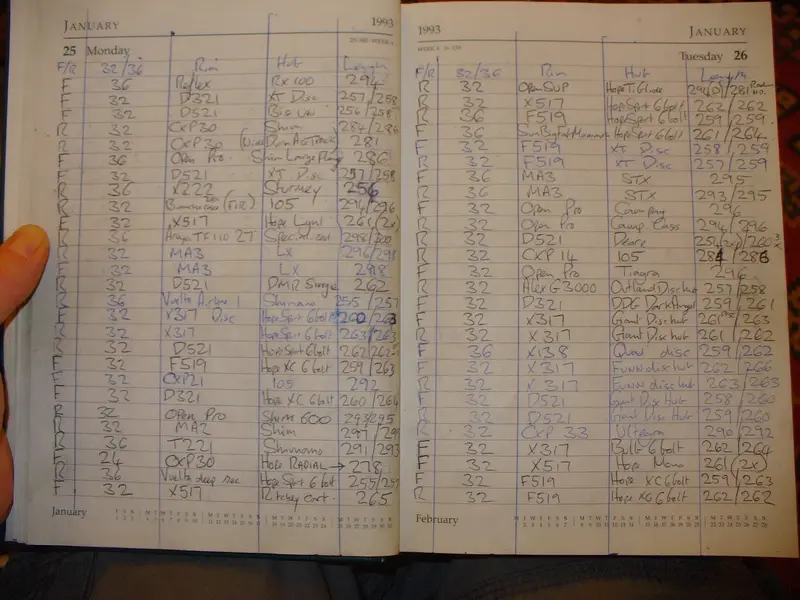 JANUARY 1993
25 Monday 25-340 WEEK 4
F/R 32/36 Rim Hub Length
F 36 Reflex RX 100 294
F 32 D321 XT Disc 257/258
F 32 D521 256/258
R 32 CXP30 Shim 284/286
R 32 CXP30 281
F 36 Open Pro. Shim Large Flang 286
F 32 D521 XT Disc 257/258
R 36 X222 Sturmey 256
R 32 (F/R) 105 294/296
F 32 X517 Hope Light 261 (2x)
R 36 Araya TF110 27 Specialized 298/300
R 32 MA3 LX 296/298
F 32 MA3 LX 298
R 32 D521 DMR Single 262
R 36 Vuelta Airline 1 Shimano 255/257
F 32 X317 Disc Hope Sport 6bolt 260/263
R 32 X317 Hope Sport 6bolt 263/263
R 32 D521 Hope Sport 6bolt 262/262
F 32 F519 Hope XC 6bolt 259/263
F 32 CXP21 105 292
F 32 D321 Hope XC 6bolt 260/264
R 32 Open Pro Shim 600 293/295
R 32 MA2 Shim 297/299
R 36 T221 Shimano 291/293
F 24 CXP30 Hope RADIAL → 278
R 36 Vuelta deep sec Hope Sport 6bolt 255/257
F 32 X517 Ritchey cart. 265
January
1993 JANUARY
WEEK 4 26-339 Tuesday 26
F/R 32/36 Rim Hub Length
R 32 Open SUP Hope Ti Glide 294(D)/281
R 32 X517 Hope Sport 6bolt 262/262
R 36 F519 Hope Sport 6bolt 259/259
F 36 Sun Hope Sport 6bolt 261/264
F 32 F519 XT Disc 258/259
R 32 F519 XT Disc 257/259
F 36 MA3 STX 295
R 36 MA3 STX 293/295
F 32 Open Pro Campag 296
R 32 Open Pro Camp Cass 294/296
R 32 D521 Deore 260
R 32 CXP 14 105 284/286
F 32 Open Pro Tiagra 296
R 32 Alex G3000 Outland Disc hub 257/258
F 32 D321 DDG Dark Angel 259/261
F 32 X317 Giant Disc hub 261/263
R 32 X317 Giant Disc hub 261/262
F 36 X138 Quad disc 259/262
F 32 X317 Funn disc hub 262/266
R 32 X317 Funn disc hub 263/263
F 32 D521 Giant Disc hub 258/260
R 32 D521 Giant Disc Hub 259/260
R 32 CXP 33 Ultegra 290/292
F 32 X317 Bulb 6bolt 262/264
F 32 X517 Hope Mono 261 (2x)
F 32 F519 Hope XC6bolt 259/263
R 32 F519 Hope XC 6bolt 262/262
February